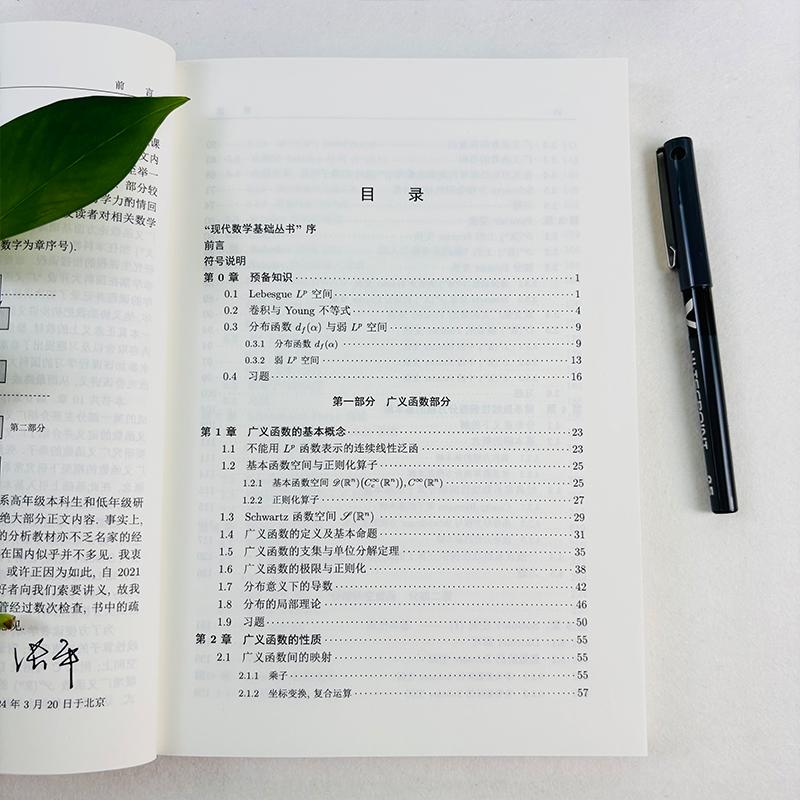 前 言
课
文内
至举一
部分较
学力酌情回
读者对相关数学
数字为章序号).
第二部分
系高年级本科生和低年级研
绝大部分正文内容. 事实上,
的分析教材亦不乏名家的经
在国内似乎并不多见. 我衷
或许正因为如此, 自 2021
好者向我们索要讲义, 故我
管经过数次检查, 书中的疏
意见.
24 年 3 月 20 日于北京
目 录
“现代数学基础丛书” 序
前言
符号说明
第 0 章 预备知识 1
0.1 Lebesgue Lᵖ 空间 1
0.2 卷积与 Young 不等式 4
0.3 分布函数 d_f(α) 与弱 Lᵖ 空间 9
0.3.1 分布函数 d_f(α) 9
0.3.2 弱 Lᵖ 空间 13
0.4 习题 16
第一部分 广义函数部分
第 1 章 广义函数的基本概念 23
1.1 不能用 Lᵖ 函数表示的连续线性泛函 23
1.2 基本函数空间与正则化算子 25
1.2.1 基本函数空间 𝒟(ℝⁿ)(C_c^∞(ℝⁿ)), C^∞(ℝⁿ) 25
1.2.2 正则化算子 27
1.3 Schwartz 函数空间 𝒮(ℝⁿ) 29
1.4 广义函数的定义及基本命题 31
1.5 广义函数的支集与单位分解定理 35
1.6 广义函数的极限与正则化 38
1.7 分布意义下的导数 42
1.8 分布的局部理论 46
1.9 习题 50
第 2 章 广义函数的性质 55
2.1 广义函数间的映射 55
2.1.1 乘子 55
2.1.2 坐标变换, 复合运算 57
V
HI-TECPOINT